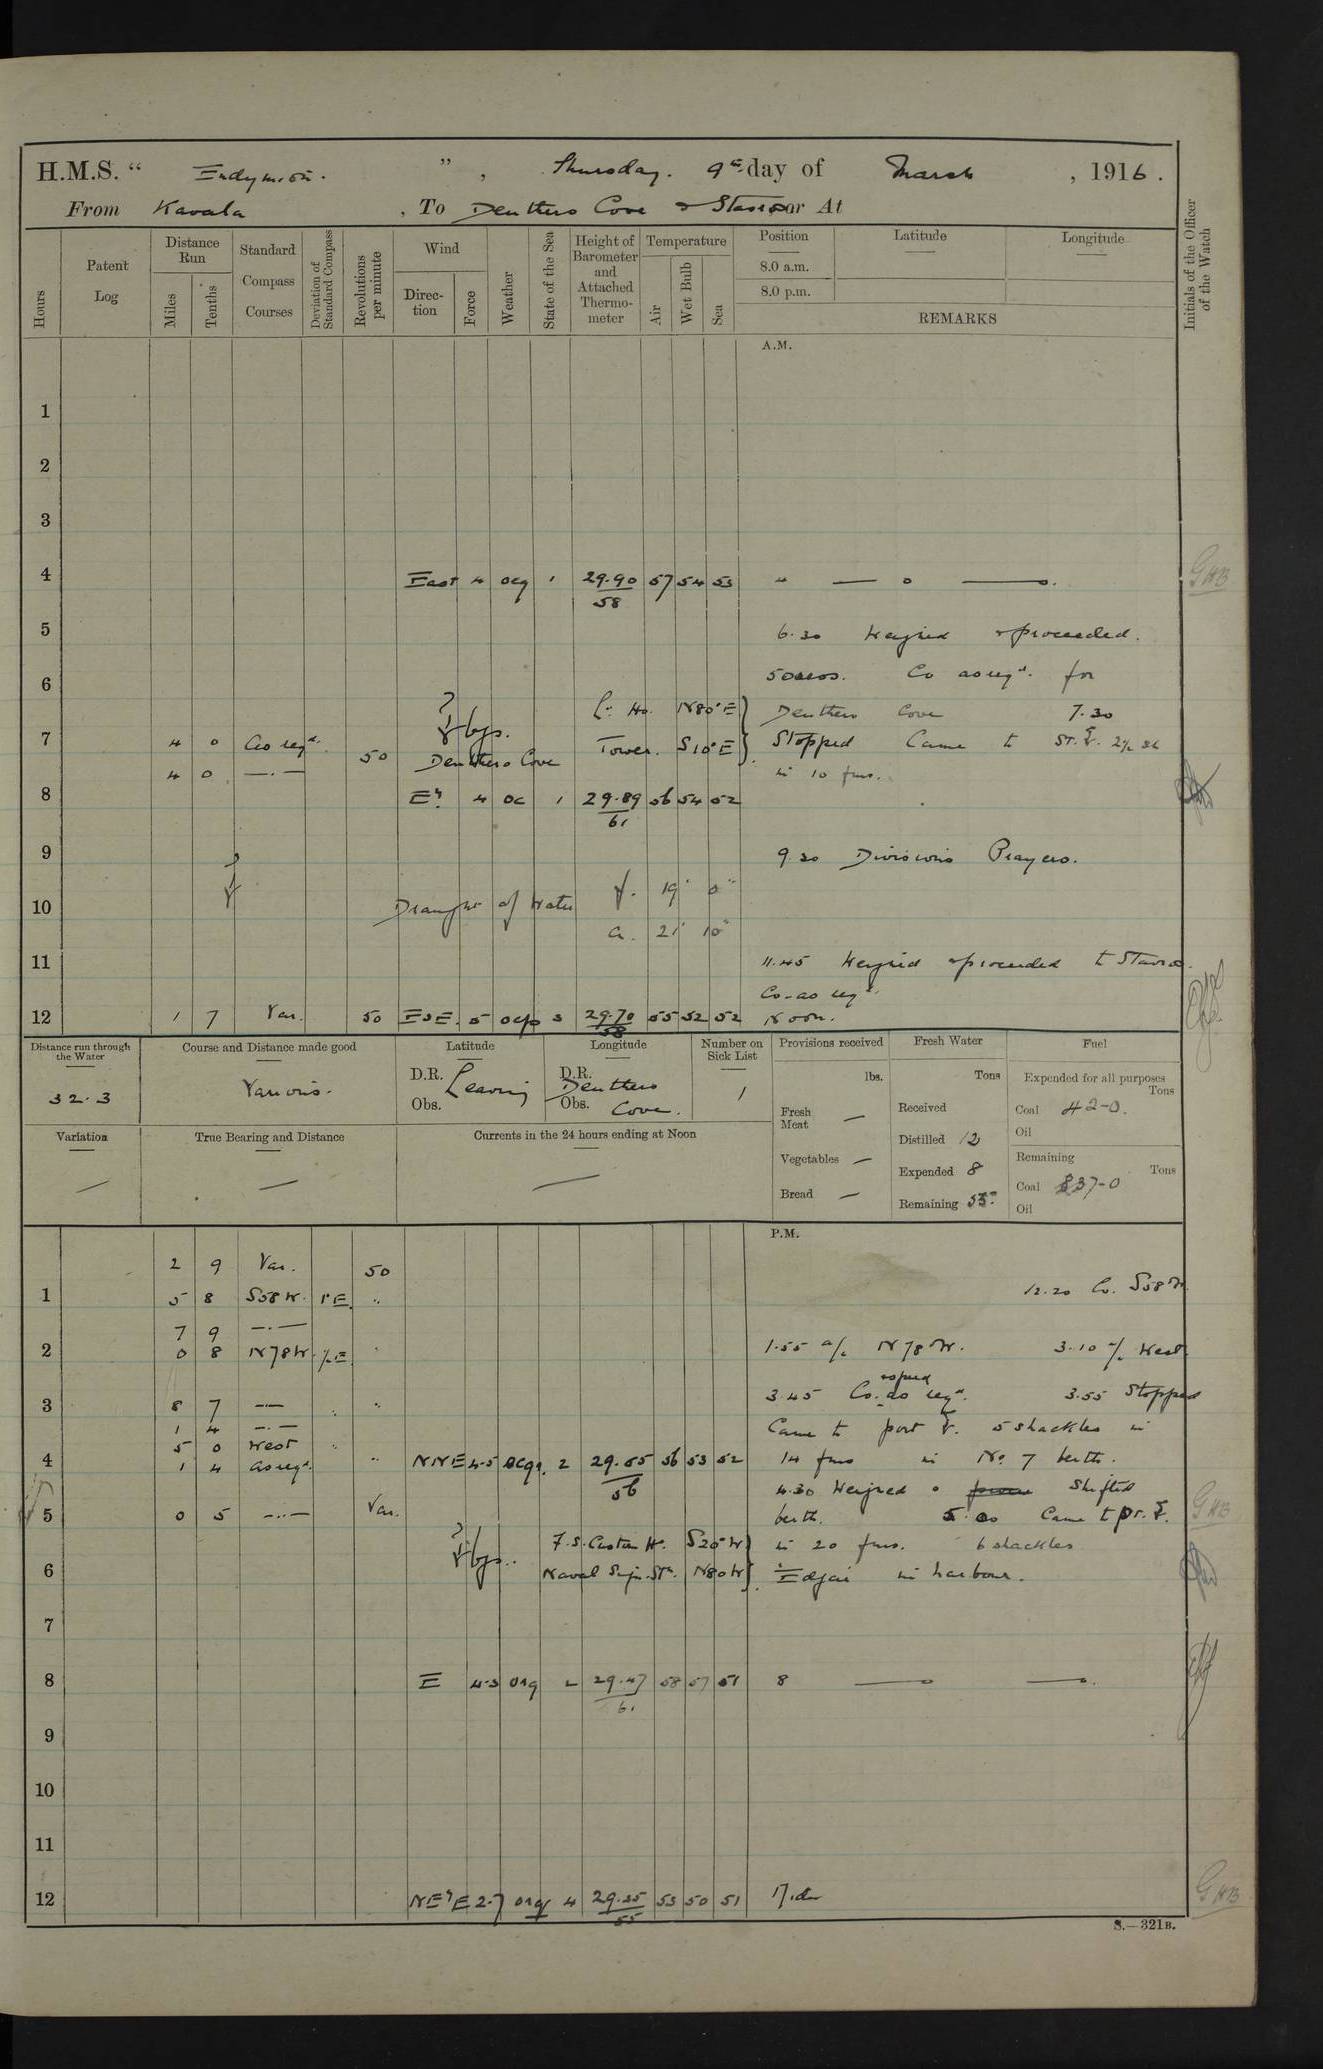 H.M.S. “ Endymion. ” , Thursday. 9th day of March , 1916 .
From Kavala , To Deuthero Cove & Stavros or At
Hours
Patent Log
Distance Run
Miles
Tenths
Standard Compass Courses
Deviation of Standard Compass
Revolutions per minute
Wind
Direction
Force
Weather
State of the Sea
Height of Barometer and Attached Thermometer
Temperature
Air
Wet Bulb
Sea
Position
8.0 a.m.
8.0 p.m.
Latitude
Longitude
REMARKS
Initials of the Officer of the Watch
A.M.
1
2
3
4 East 4 ocq 1 29.90 57 54 53 4 GHB
58
5 6.30 Weighed & proceeded.
6 50 revs. Co as reqd. for
Lt. Ho. N80°E Deuthero Cove 7.30
bgs.
7 4 0 Co reqd. 50 Deuthero Cove Tower. S10°E Stopped Came to St. 2½ Sh
4 0 —.— in 10 fms.
8 Ely. 4 oc 1 29.89 56 54 52
61
9 9.30 Divisions Prayers.
10 Draught of Water f. 19' 0"
a. 21' 10"
11 11.45 Weighed & proceeded to Stavros.
Co. as reqd.
12 1 7 Var. 50 ESE. 5 ocp 3 29.70 55 52 52 Noon.
58
Distance run through the Water
32.3
Course and Distance made good
Various.
Latitude
D.R.
Obs.
Leaving
Longitude
D.R.
Obs.
Deuthero Cove.
Number on Sick List
1
Provisions received
lbs.
Fresh Meat —
Vegetables —
Bread —
Fresh Water
Tons
Received
Distilled 12
Expended 8
Remaining 55
Fuel
Expended for all purposes
Tons
Coal 42-0.
Oil
Remaining
Tons
Coal 837-0
Oil
Variation
—
True Bearing and Distance
—
Currents in the 24 hours ending at Noon
—
P.M.
2 9 Var. 50
1 5 8 S58W. 1°E. " 12.20 Co. S58W
7 9 —.—
2 0 8 N78W. ½E. " 1.55 a/c N78W. 3.10 a/c West.
& speed
3 8 7 —.— " " 3.45 Co. as reqd. 3.55 Stopped
1 4 —.— Came to port 5 shackles in
5 0 West "
4 1 4 as reqd. " NNE 4-5 ocqr. 2 29.55 56 53 52 14 fms in No. 7 berth.
56
4.30 Weighed & Shifted
5 0 5 —..— Var. berth. 5.00 Came to pr.
bgs. F.S. Custom Ho. S20°W in 20 fms. 6 shackles
6 Naval Sign. Stn. N80W "Edgar in harbour.
7
8 E 4-5 orq 2 29.47 58 57 51 8
61
9
10
11
12 NE'E 2-7 orq 4 29.35 53 50 51 Mid. GHB
55
S.—321B.